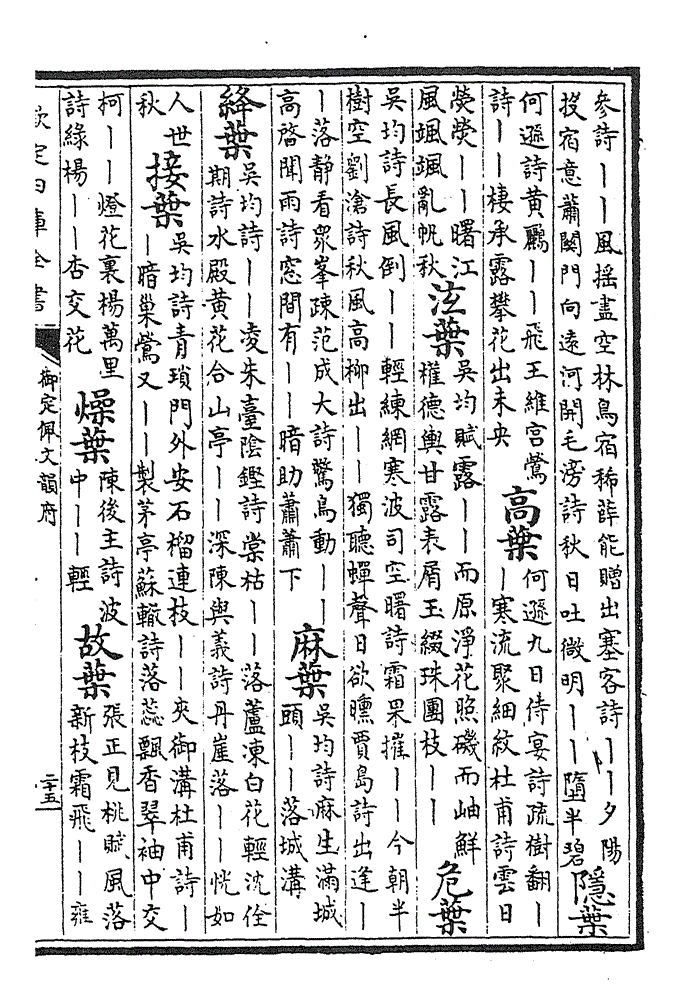 參詩丨丨風揺盡空林鳥宿稀薛能贈出塞客詩丨丨夕陽
投宿意蕭關門向遠河開毛滂詩秋日吐微明丨丨墮半碧
隱葉
何遜詩黄鸝丨丨飛王維宫鶯
詩丨丨棲承露攀花出未央
高葉
何遜九日侍宴詩疏樹翻丨
丨寒流聚細紋杜甫詩雲日
熒熒丨丨曙江
風颯颯亂帆秋
泫葉
吳均賦露丨丨而原淨花照磯而岫鮮
權德輿甘露表屑玉綴珠團枝丨丨
危葉
吳均詩長風倒丨丨輕練網寒波司空曙詩霜果摧丨丨今朝半
樹空劉滄詩秋風高柳出丨丨獨聽蟬聲日欲曛賈島詩出逢丨
丨落静看衆峯疎范成大詩驚鳥動丨丨
高啓聞雨詩窓間有丨丨暗助蕭蕭下
麻葉
吳均詩麻生滿城
頭丨丨落城溝
絳葉
吳均詩丨丨凌朱臺陰鏗詩棠枯丨丨落蘆凍白花輕沈佺
期詩水殿黄花合山亭丨丨深陳與義詩丹崖落丨丨恍如
人世
秋
接葉
吳均詩青瑣門外安石榴連枝丨丨夾御溝杜甫詩丨
丨暗巢鶯又丨丨製茅亭蘇轍詩落蕊飄香翠袖中交
柯丨丨燈花裏楊萬里
詩綠楊丨丨杏交花
燥葉
陳後主詩波
中丨丨輕
故葉
張正見桃賦風落
新枝霜飛丨丨雍
欽定四庫全書
御定佩文韻府
二十五